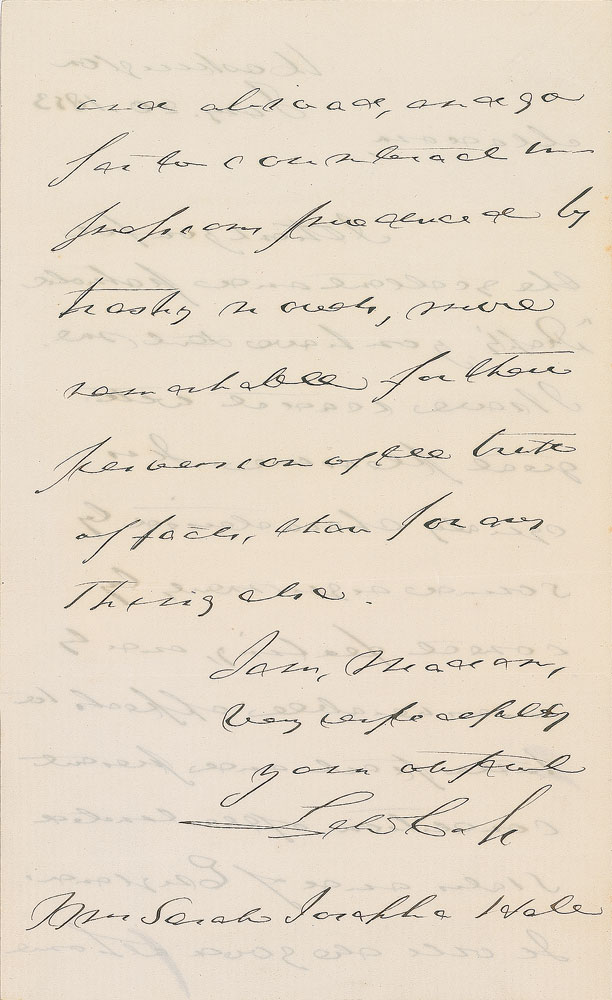 and abroad, and go
far to counteract the
impressions produced by
trashy novels, more
remarkable for their
perversion of the truth
of facts, than for any
Thing else.
I am, Madam,
Very respectfully
your obt servt
Lew Cass
Mrs Sarah Josepha Hale